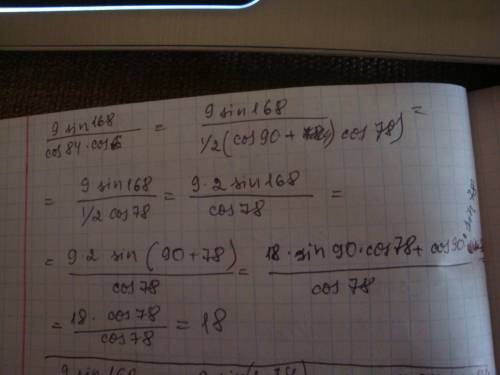 9 sin168 / cos84·cos6 = 9 sin168 / 1/2(cos90 + cos78) =
= 9 sin168 / 1/2 cos78 = 9·2 sin168 / cos78 =
= 9·2 sin(90+78) / cos78 = 18·sin90·cos78 + cos90· / cos78
= 18·cos78 / cos78 = 18